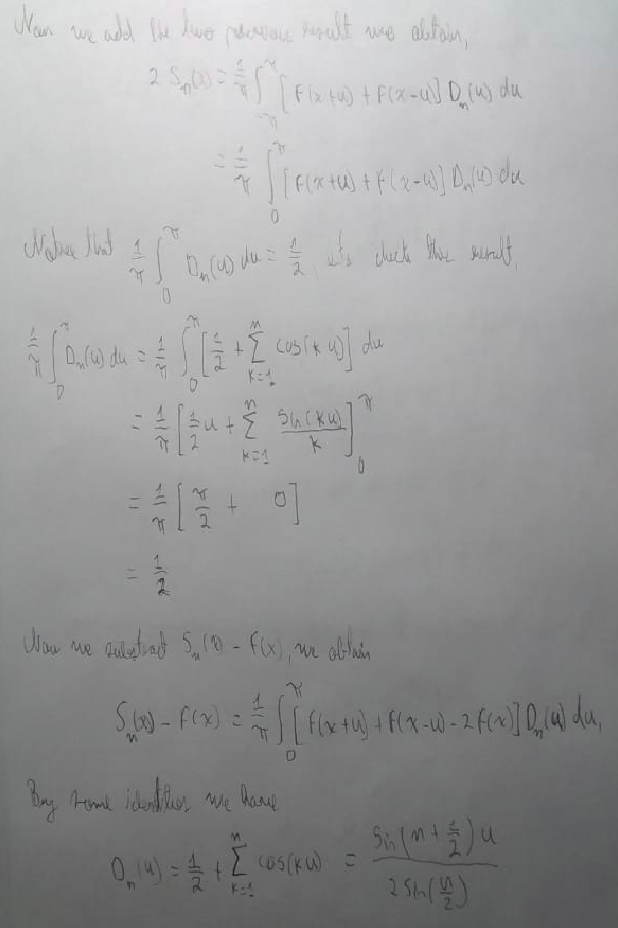 Now we add the two previous result we obtain,
2 S_n(x) = 1/π ∫_{-π}^{π} [F(x+u) + F(x-u)] D_n(u) du
= 1/π ∫_0^π [F(x+u) + F(x-u)] D_n(u) du
Notice that 1/π ∫_0^π D_n(u) du = 1/2, check the result,
1/π ∫_0^π D_n(u) du = 1/π ∫_0^π [1/2 + ∑_{k=1}^n cos(k u)] du
= 1/π [1/2 u + ∑_{k=1}^n sin(ku)/k]_0^π
= 1/π [π/2 + 0]
= 1/2
Now we substract S_n(x) - F(x), we obtain
S_n(x) - F(x) = 1/π ∫_0^π [F(x+u) + F(x-u) - 2F(x)] D_n(u) du,
By some identities we have
D_n(u) = 1/2 + ∑_{k=1}^n cos(ku) = sin(n + 1/2)u / 2 sin(u/2)